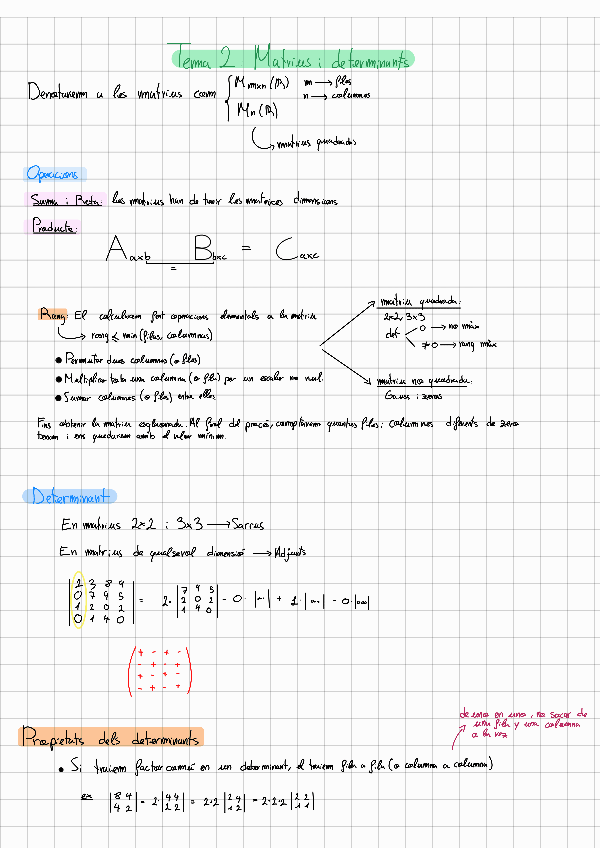 Tema 2 Matrius i determinants
Denotarem a les matrius com { Mmxn (R) m → files
n → columnes
Mn (R)
↳ matrius quadrades
Operacions
Suma i Resta: les matrius han de tenir les mateixes dimensions
Producte:
Aaxb Bbxc = Caxc
=
Rang: El calculem fent operacions elementals a la matriu
↳ rang ≤ min (files, columnes)
• Permutar dues columnes (o files)
• Multiplicar tota una columna (o fila) per un escalar no nul.
• Sumar columnes (o files) entre elles
matriu quadrada:
2x2, 3x3
det 0 → no màx
≠0 → rang màx
matriu no quadrada:
Gauss i zeros
Fins obtenir la matriu esglaonada. Al final del procés, comptarem quantes files i columnes diferents de zero
tenim i ens quedarem amb el valor mínim.
Determinant
En matrius 2x2 i 3x3 → Sarrus
En matrius de qualsevol dimensió → Adjunts
|2 3 8 4|
|0 7 4 5| = 2·|7 4 5| - 0·|...| + 1·|...| - 0·|...|
|1 2 0 2| |2 0 2|
|0 1 4 0| |1 4 0|
+ - + -
- + - +
+ - + -
- + - +
de uno en uno, no sacar de
una fila y una columna
a la vez
Propietats dels determinants
• Si traiem factor comú en un determinant, el traiem fila a fila (o columna a columna)
ex |8 4| = 2·|4 4| = 2·2 |2 4| = 2·2·2 |2 2|
|4 2| |2 2| |1 2| |1 1|